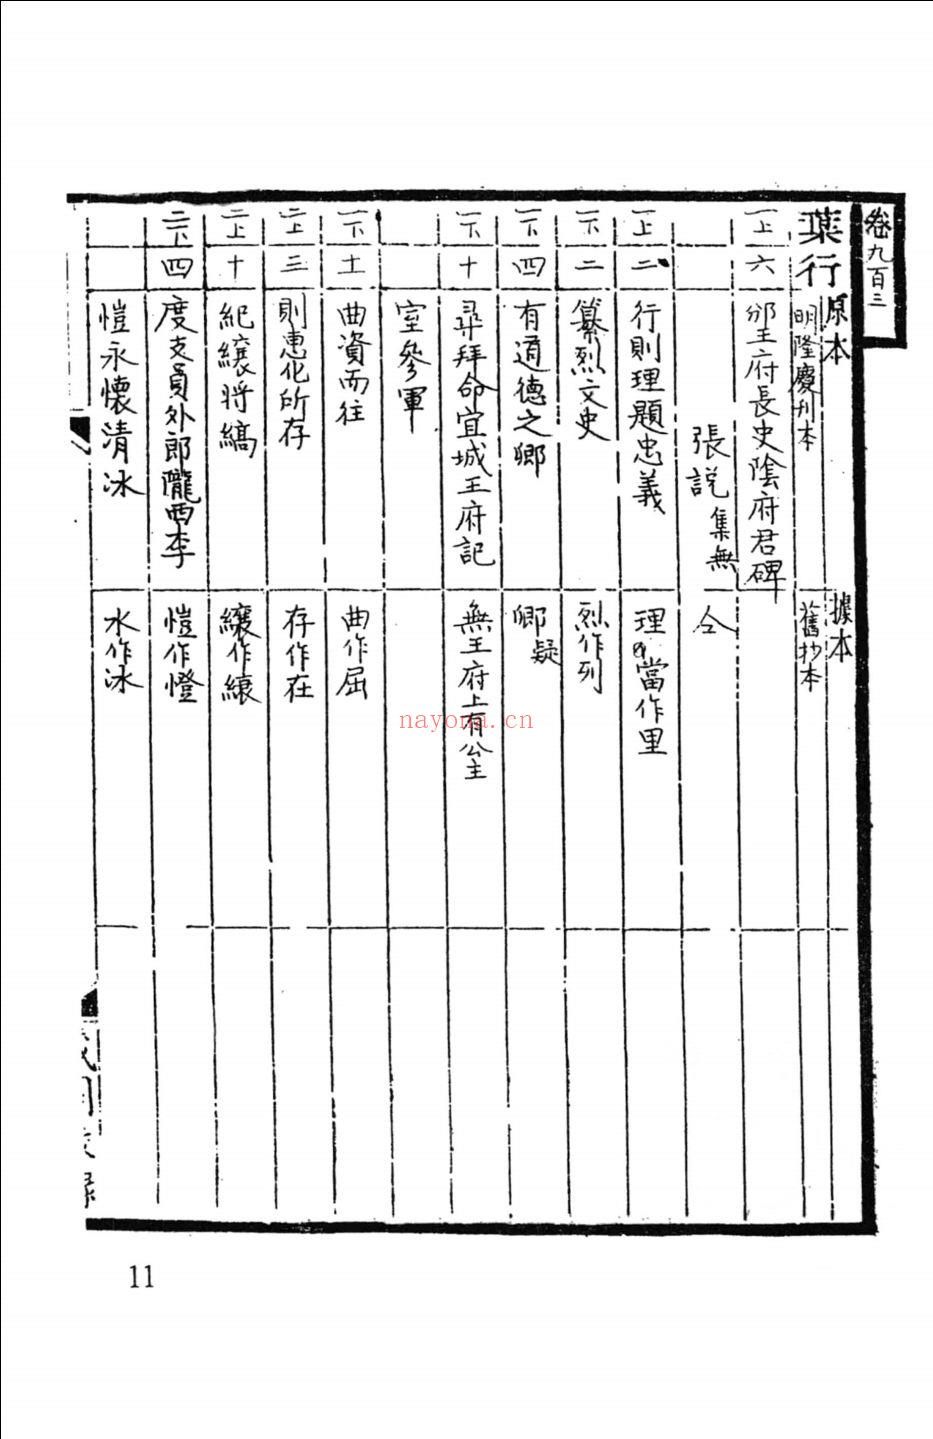 卷九百三
葉行 原本 據本
明隆慶刊本 舊抄本
一上 六 邠王府長史陰府君碑
張説集無 仝
一上 二 行則理題忠義 理當作里
一下 二 纂烈文史 烈作列
一下 四 有道德之卿 卿疑
一下 十 尋拜命宜城王府記 無王府上有公主
室參軍
一下 十一 曲資而往 曲作屈
二上 三 則惠化所存 存作在
二上 十 紀纕將縞 纕作縗
二下 四 度支員外郎隴西李 愷作憕
愷永懷清冰 水作冰
nayona.cn
11